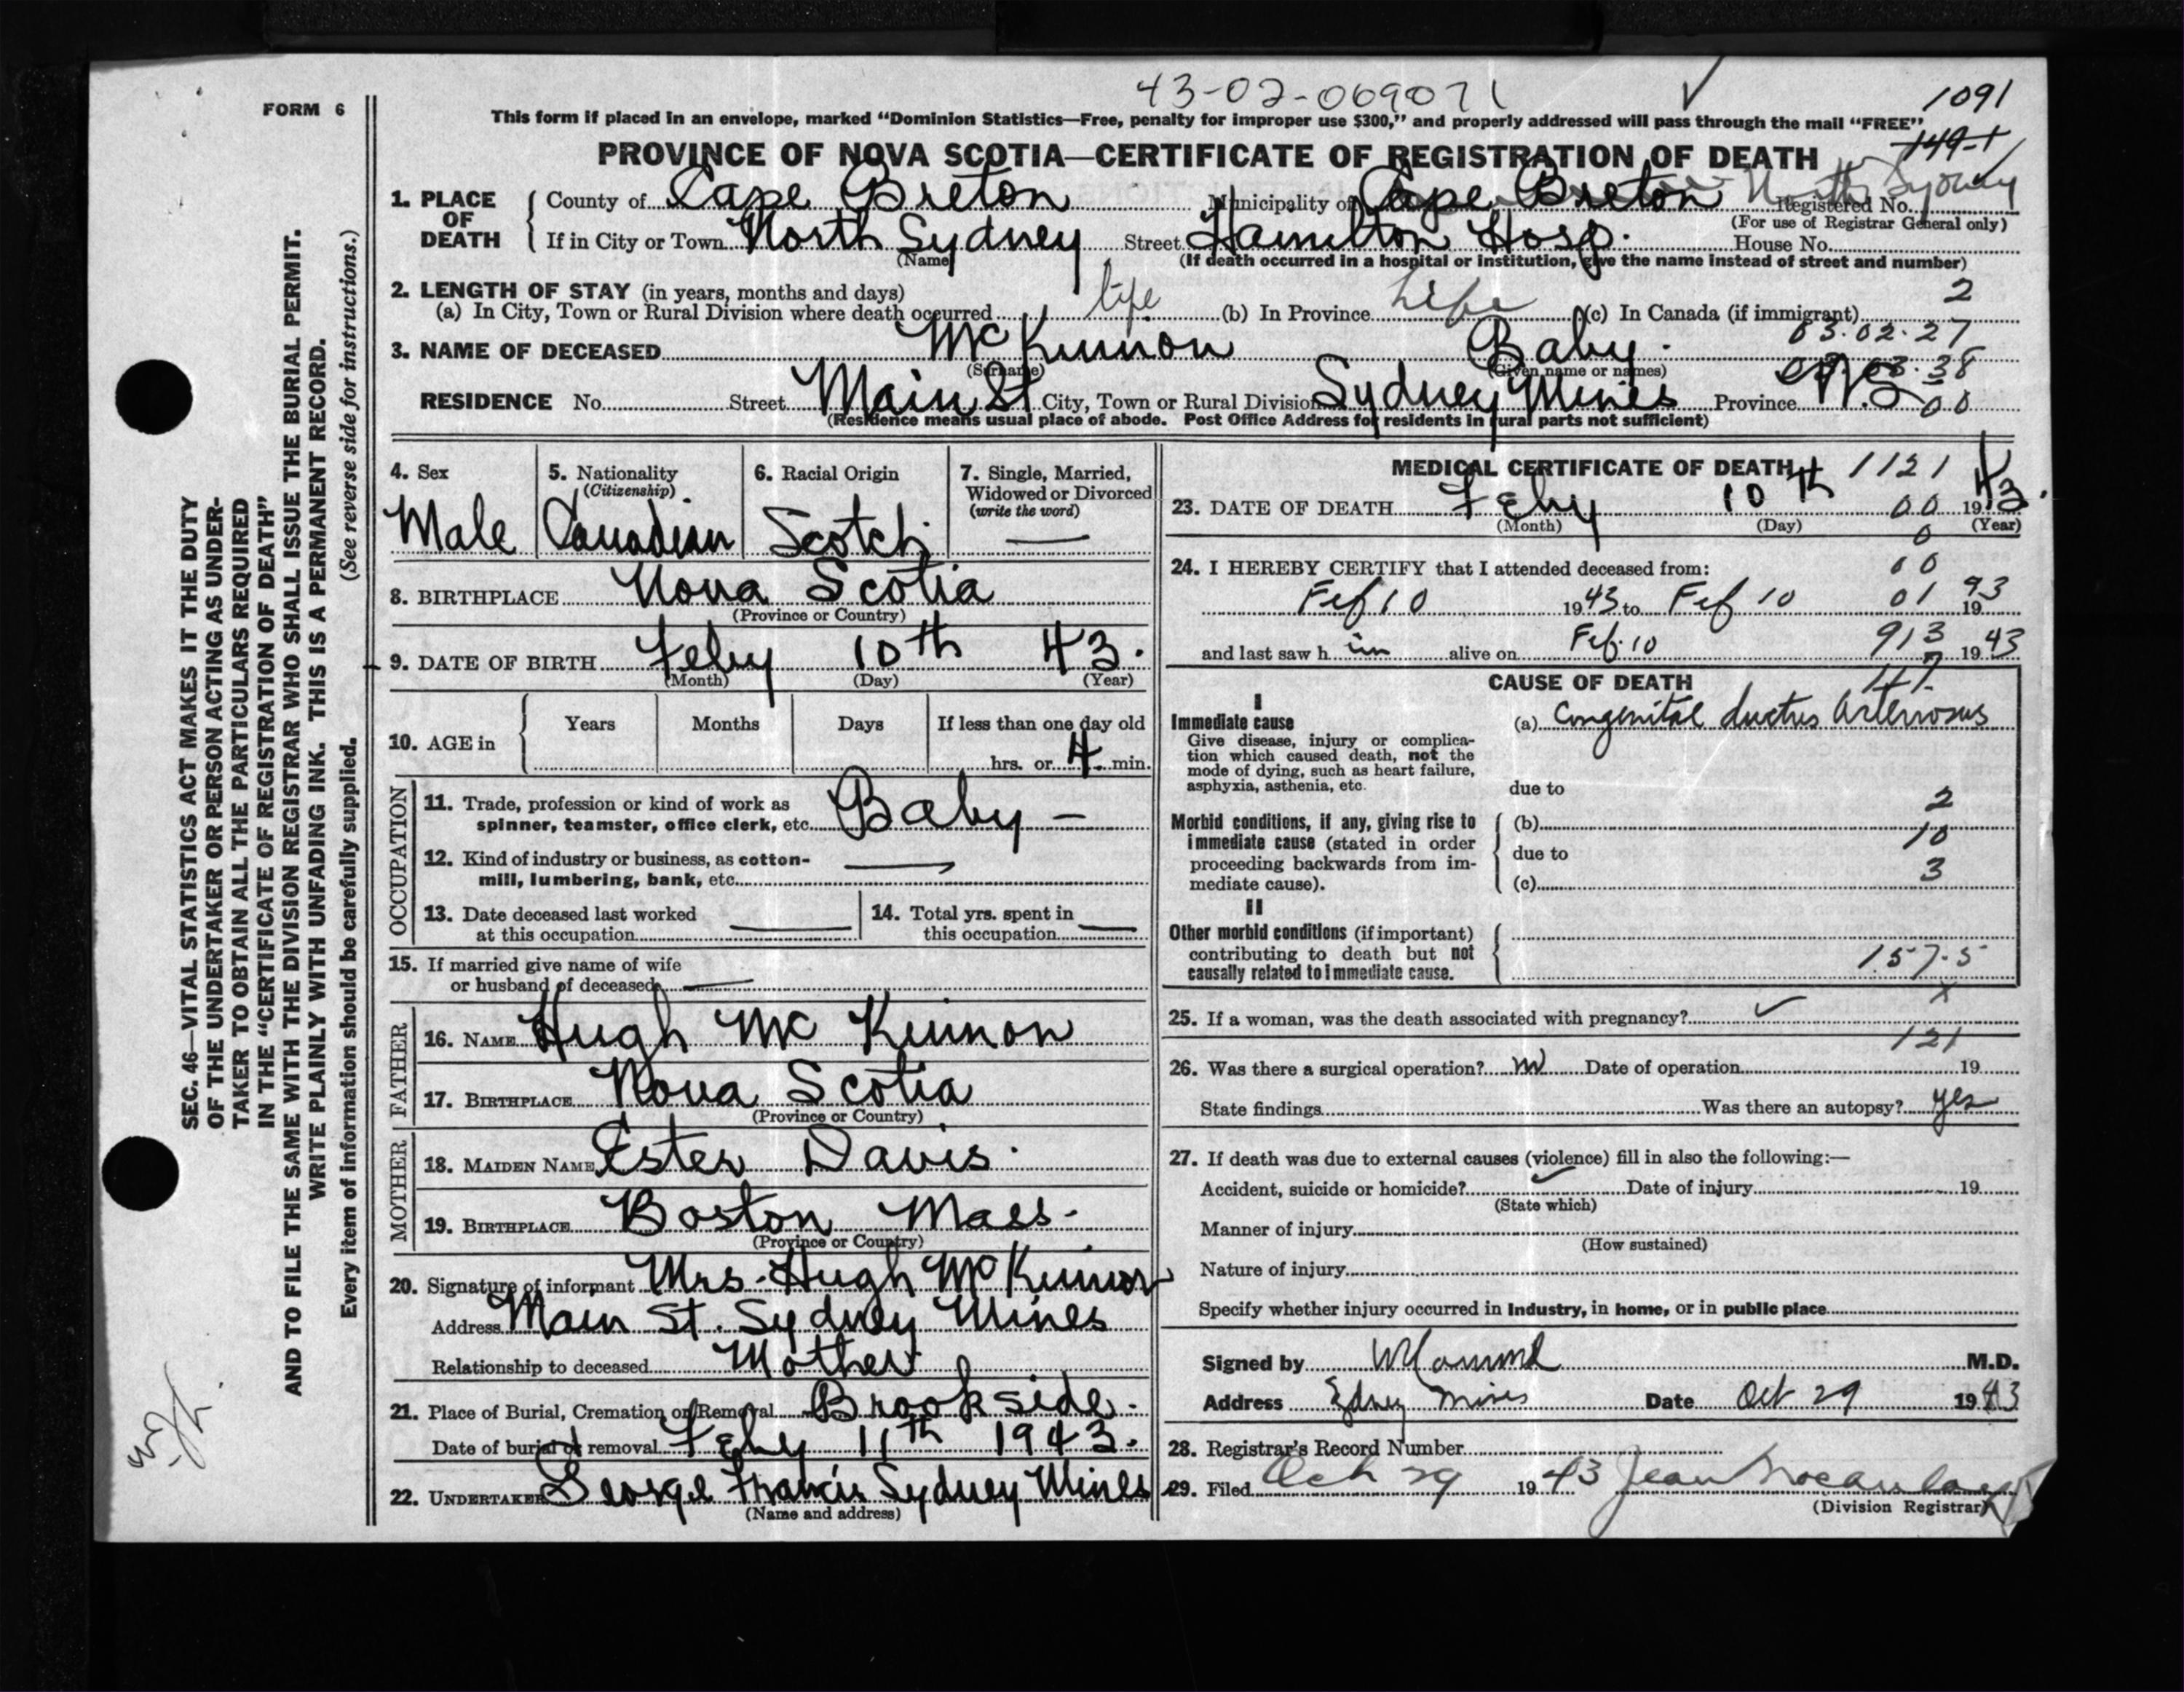 43-02-069071
1091
FORM 6
This form if placed in an envelope, marked “Dominion Statistics—Free, penalty for improper use $300,” and properly addressed will pass through the mail “FREE”
149-1
PROVINCE OF NOVA SCOTIA—CERTIFICATE OF REGISTRATION OF DEATH
North Sydney
1. PLACE OF DEATH
County of Cape Breton Municipality of Cape Breton Registered No.
(For use of Registrar General only)
If in City or Town North Sydney Street Hamilton Hosp. House No.
(Name) (If death occurred in a hospital or institution, give the name instead of street and number)
2. LENGTH OF STAY (in years, months and days)
(a) In City, Town or Rural Division where death occurred life (b) In Province Life (c) In Canada (if immigrant) 2
03.02.27
3. NAME OF DECEASED Mc Kinnon Baby.
(Surname) (Given name or names)
03.38
RESIDENCE No. Street Main St City, Town or Rural Division Sydney Mines Province N.S 00
(Residence means usual place of abode. Post Office Address for residents in rural parts not sufficient)
4. Sex
Male
5. Nationality
(Citizenship)
Canadian
6. Racial Origin
Scotch
7. Single, Married,
Widowed or Divorced
(write the word)
—
8. BIRTHPLACE Nova Scotia
(Province or Country)
9. DATE OF BIRTH Feby 10th 43.
(Month) (Day) (Year)
10. AGE in
Years Months Days If less than one day old
hrs. or 4 min.
OCCUPATION
11. Trade, profession or kind of work as
spinner, teamster, office clerk, etc. Baby —
12. Kind of industry or business, as cotton-
mill, lumbering, bank, etc. —
13. Date deceased last worked
at this occupation —
14. Total yrs. spent in
this occupation —
15. If married give name of wife
or husband of deceased —
FATHER
16. NAME Hugh Mc Kinnon
17. BIRTHPLACE Nova Scotia
(Province or Country)
MOTHER
18. MAIDEN NAME Ester Davis.
19. BIRTHPLACE Boston Mass.
(Province or Country)
20. Signature of informant Mrs. Hugh Mc Kinnon
Address Main St. Sydney Mines
Relationship to deceased Mother
21. Place of Burial, Cremation or Removal Brookside.
Date of burial or removal Feby 11th 1943.
22. UNDERTAKER George Francis Sydney Mines
(Name and address)
MEDICAL CERTIFICATE OF DEATH
1121
23. DATE OF DEATH Feby 10th 00 1943.
(Month) (Day) (Year)
0
24. I HEREBY CERTIFY that I attended deceased from:
00
Feb 10 1943 to Feb 10 01 1943
and last saw him alive on Feb. 10 913 1943
CAUSE OF DEATH
I
Immediate cause
Give disease, injury or complica-
tion which caused death, not the
mode of dying, such as heart failure,
asphyxia, asthenia, etc.
(a) Congenital ductus Arteriosus
due to
2
Morbid conditions, if any, giving rise to
immediate cause (stated in order
proceeding backwards from im-
mediate cause).
(b)
10
due to
(c) 3
II
Other morbid conditions (if important)
contributing to death but not
causally related to immediate cause.
157.5
x
25. If a woman, was the death associated with pregnancy? ✓
121
26. Was there a surgical operation? no Date of operation 19
State findings Was there an autopsy? yes
27. If death was due to external causes (violence) fill in also the following:—
Accident, suicide or homicide? ✓ Date of injury 19
(State which)
Manner of injury
(How sustained)
Nature of injury
Specify whether injury occurred in Industry, in home, or in public place
Signed by M.D.
Address Sydney Mines Date Oct 29 1943
28. Registrar's Record Number
29. Filed Oct 29 1943 Jean
(Division Registrar)
SEC. 46—VITAL STATISTICS ACT MAKES IT THE DUTY
OF THE UNDERTAKER OR PERSON ACTING AS UNDER-
TAKER TO OBTAIN ALL THE PARTICULARS REQUIRED
IN THE “CERTIFICATE OF REGISTRATION OF DEATH”
AND TO FILE THE SAME WITH THE DIVISION REGISTRAR WHO SHALL ISSUE THE BURIAL PERMIT.
WRITE PLAINLY WITH UNFADING INK. THIS IS A PERMANENT RECORD.
Every item of information should be carefully supplied. (See reverse side for instructions.)